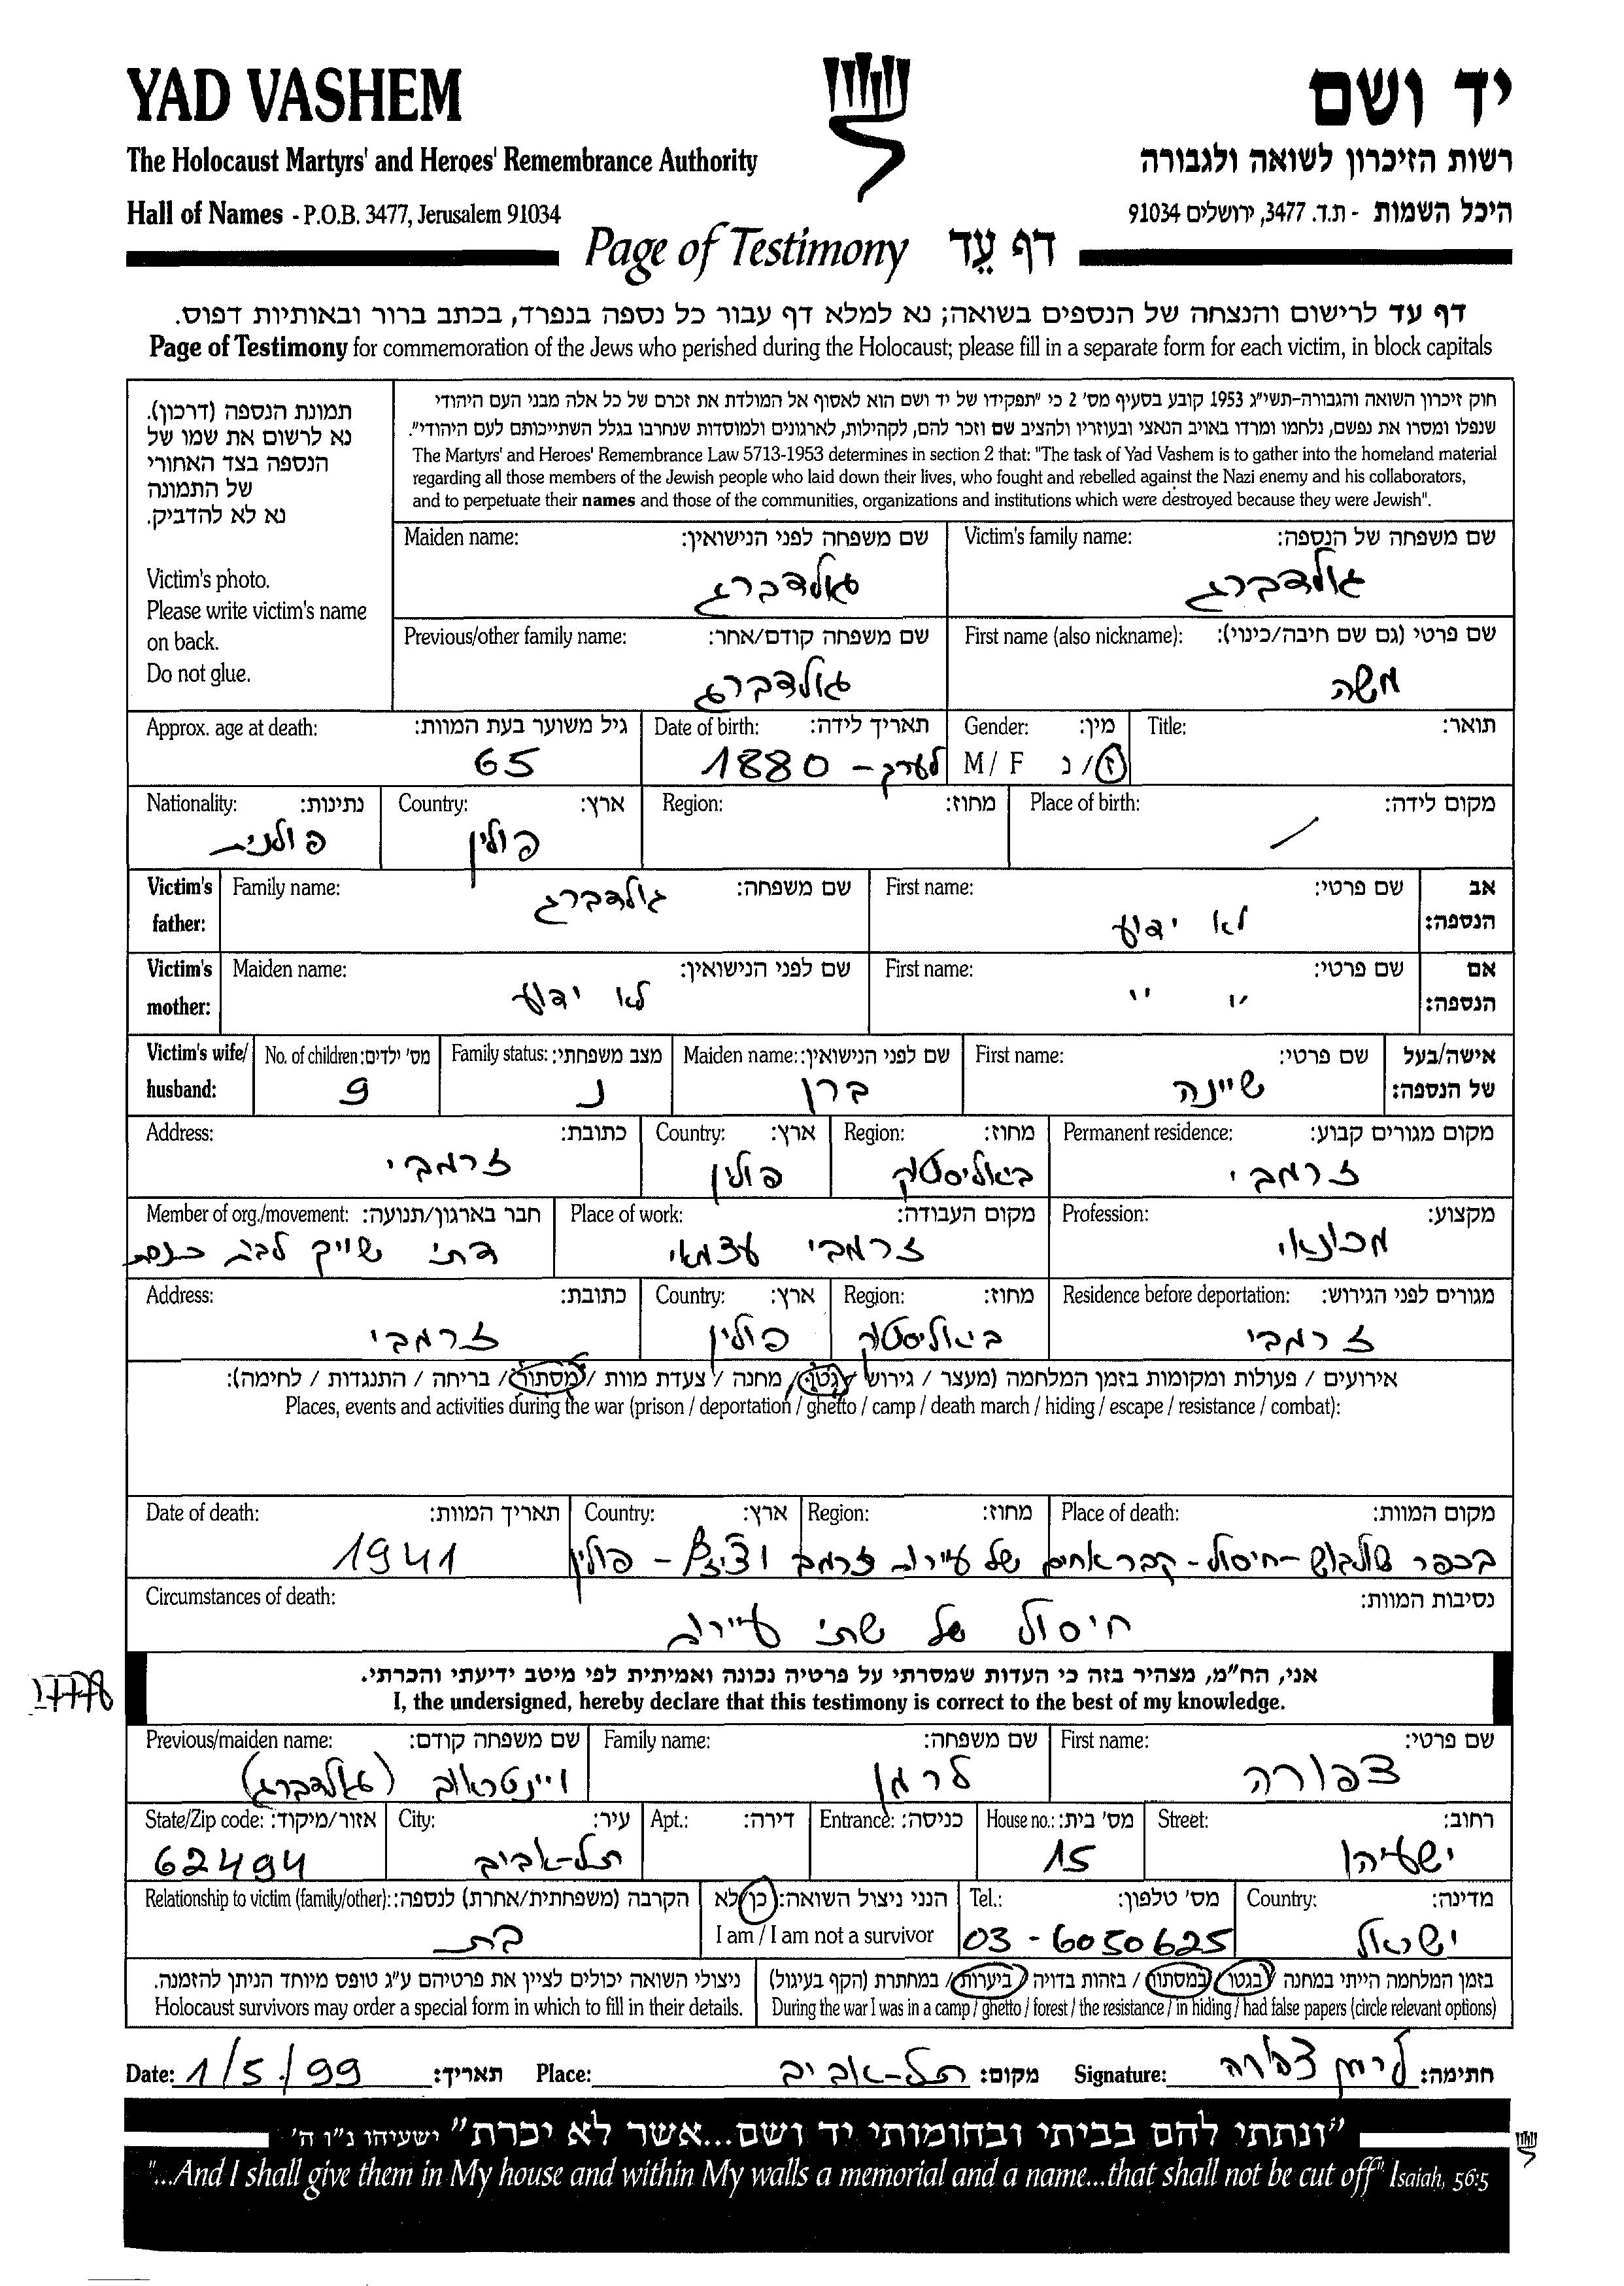 YAD VASHEM
יד ושם
The Holocaust Martyrs' and Heroes' Remembrance Authority
רשות הזיכרון לשואה ולגבורה
Hall of Names - P.O.B. 3477, Jerusalem 91034
היכל השמות - ת.ד. 3477, ירושלים 91034
Page of Testimony דף עֵד
דף עד לרישום והנצחה של הנספים בשואה; נא למלא דף עבור כל נספה בנפרד, בכתב ברור ובאותיות דפוס.
Page of Testimony for commemoration of the Jews who perished during the Holocaust; please fill in a separate form for each victim, in block capitals
תמונת הנספה (דרכון).
נא לרשום את שמו של
הנספה בצד האחורי
של התמונה
נא לא להדביק.
Victim's photo.
Please write victim's name
on back.
Do not glue.
חוק זיכרון השואה והגבורה-תשי"ג 1953 קובע בסעיף מס' 2 כי "תפקידו של יד ושם הוא לאסוף אל המולדת את זכרם של כל אלה מבני העם היהודי
שנפלו ומסרו את נפשם, נלחמו ומרדו באויב הנאצי ובעוזריו ולהציב שם וזכר להם, לקהילות, לארגונים ולמוסדות שנחרבו בגלל השתייכותם לעם היהודי".
The Martyrs' and Heroes' Remembrance Law 5713-1953 determines in section 2 that: "The task of Yad Vashem is to gather into the homeland material
regarding all those members of the Jewish people who laid down their lives, who fought and rebelled against the Nazi enemy and his collaborators,
and to perpetuate their names and those of the communities, organizations and institutions which were destroyed because they were Jewish".
Victim's family name: שם משפחה של הנספה:
גולדברג
Maiden name: שם משפחה לפני הנישואין:
גולדברג
First name (also nickname): שם פרטי (גם שם חיבה/כינוי):
משה
Previous/other family name: שם משפחה קודם/אחר:
גולדברג
Title: תואר:
Gender: מין:
M / F ז / נ
Date of birth: תאריך לידה:
לערך - 1880
Approx. age at death: גיל משוער בעת המוות:
65
Place of birth: מקום לידה:
Region: מחוז:
Country: ארץ:
פולין
Nationality: נתינות:
פולנית
Victim's father: אב הנספה:
First name: שם פרטי:
לא ידוע
Family name: שם משפחה:
גולדברג
Victim's mother: אם הנספה:
First name: שם פרטי:
" "
Maiden name: שם לפני הנישואין:
לא ידוע
Victim's wife/husband: אישה/בעל של הנספה:
First name: שם פרטי:
שיינה
Maiden name: שם לפני הנישואין:
ברן
Family status: מצב משפחתי:
נ
No. of children: מס' ילדים:
9
Permanent residence: מקום מגורים קבוע:
זרמבי
Region: מחוז:
ביאליסטק
Country: ארץ:
פולין
Address: כתובת:
זרמבי
Profession: מקצוע:
מכונאי
Place of work: מקום העבודה:
זרמבי עצמאי
Member of org./movement: חבר בארגון/תנועה:
דתי שייך לבית כנסת
Residence before deportation: מגורים לפני הגירוש:
זרמבי
Region: מחוז:
ביאליסטק
Country: ארץ:
פולין
Address: כתובת:
זרמבי
אירועים / פעולות ומקומות בזמן המלחמה (מעצר / גירוש / גטו / מחנה / צעדת מוות / מסתור / בריחה / התנגדות / לחימה):
Places, events and activities during the war (prison / deportation / ghetto / camp / death march / hiding / escape / resistance / combat):
Place of death: מקום המוות:
Region: מחוז:
Country: ארץ:
בכפר - חיסול - קבר אחים של עיירות זרמבי - פולין
Date of death: תאריך המוות:
1941
Circumstances of death: נסיבות המוות:
חיסול של שתי עיירות
אני, הח"מ, מצהיר בזה כי העדות שמסרתי על פרטיה נכונה ואמיתית לפי מיטב ידיעתי והכרתי.
I, the undersigned, hereby declare that this testimony is correct to the best of my knowledge.
First name: שם פרטי:
צפורה
Family name: שם משפחה:
לרמן
Previous/maiden name: שם משפחה קודם:
ויינטראוב (גולדברג)
Street: רחוב:
ישעיהו
House no.: מס' בית:
15
Entrance: כניסה:
Apt.: דירה:
City: עיר:
תל-אביב
State/Zip code: אזור/מיקוד:
62494
Country: מדינה:
ישראל
Tel.: מס' טלפון:
03-6050625
הנני ניצול השואה: כן/לא
I am / I am not a survivor
Relationship to victim (family/other): הקרבה (משפחתית/אחרת) לנספה:
בת
בזמן המלחמה הייתי במחנה / בגטו / במסתור / בזהות בדויה / ביערות / במחתרת (הקף בעיגול)
During the war I was in a camp / ghetto / forest / the resistance / in hiding / had false papers (circle relevant options)
ניצולי השואה יכולים לציין את פרטיהם ע"ג טופס מיוחד הניתן להזמנה.
Holocaust survivors may order a special form in which to fill in their details.
Date: 1/5/99 תאריך:
Place: תל-אביב מקום:
Signature: לרמן צפורה חתימה:
"ונתתי להם בביתי ובחומותי יד ושם...אשר לא יכרת" ישעיהו נ"ו ה'
"...And I shall give them in My house and within My walls a memorial and a name...that shall not be cut off" Isaiah, 56:5